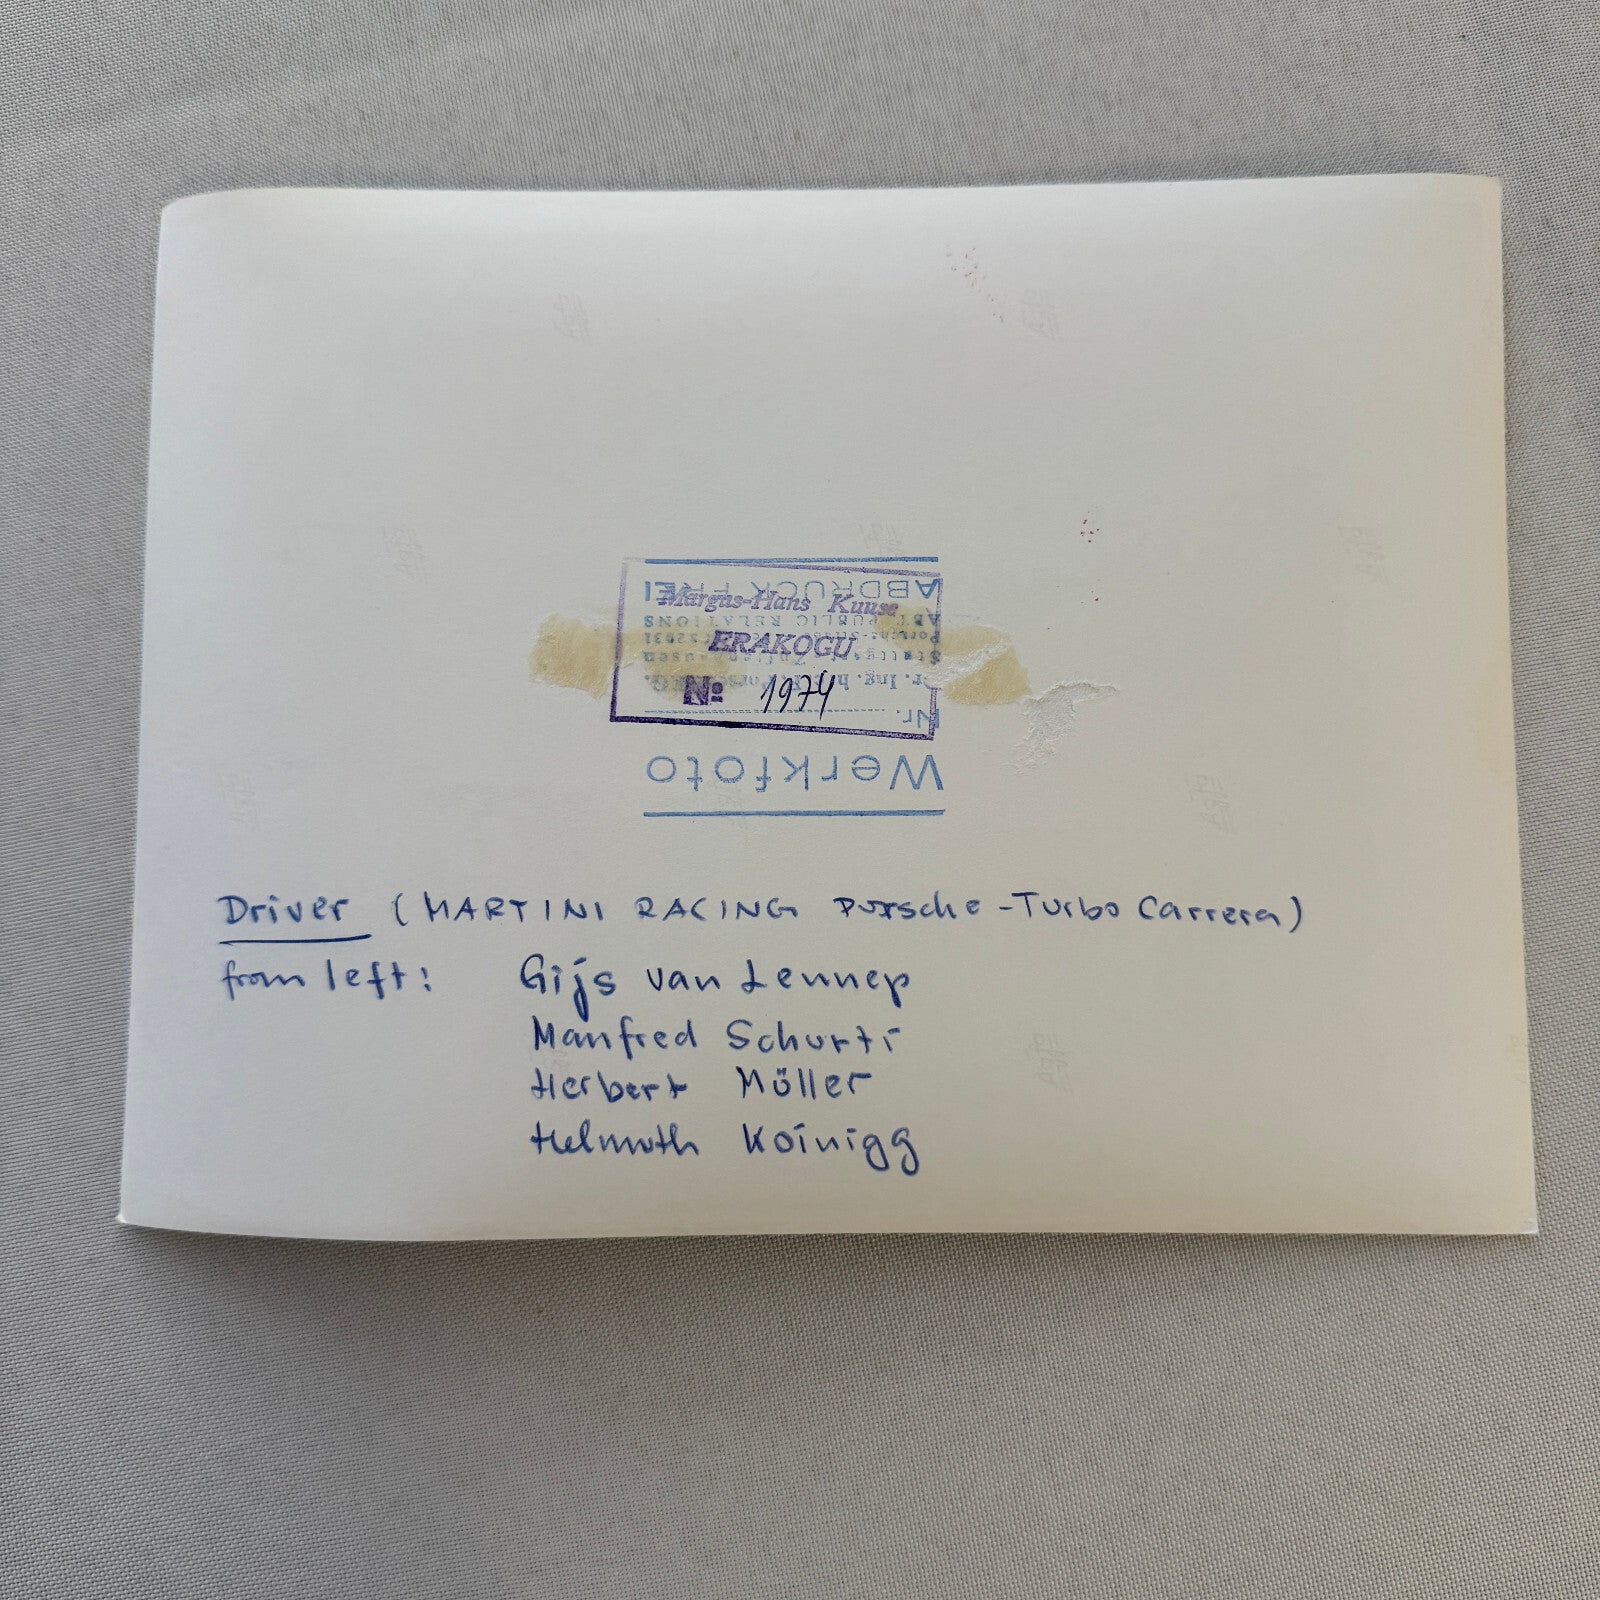 ABDRUCK FREI
Margus-Hans Kuuse
ABT. PUBLIC RELATIONS
ERAKOGU
Nº 1974
Nr.
Werkfoto
Driver (MARTINI RACING Porsche-Turbo Carrera)
from left: Gijs van Lennep
Manfred Schurti
Herbert Müller
Helmuth Koinigg